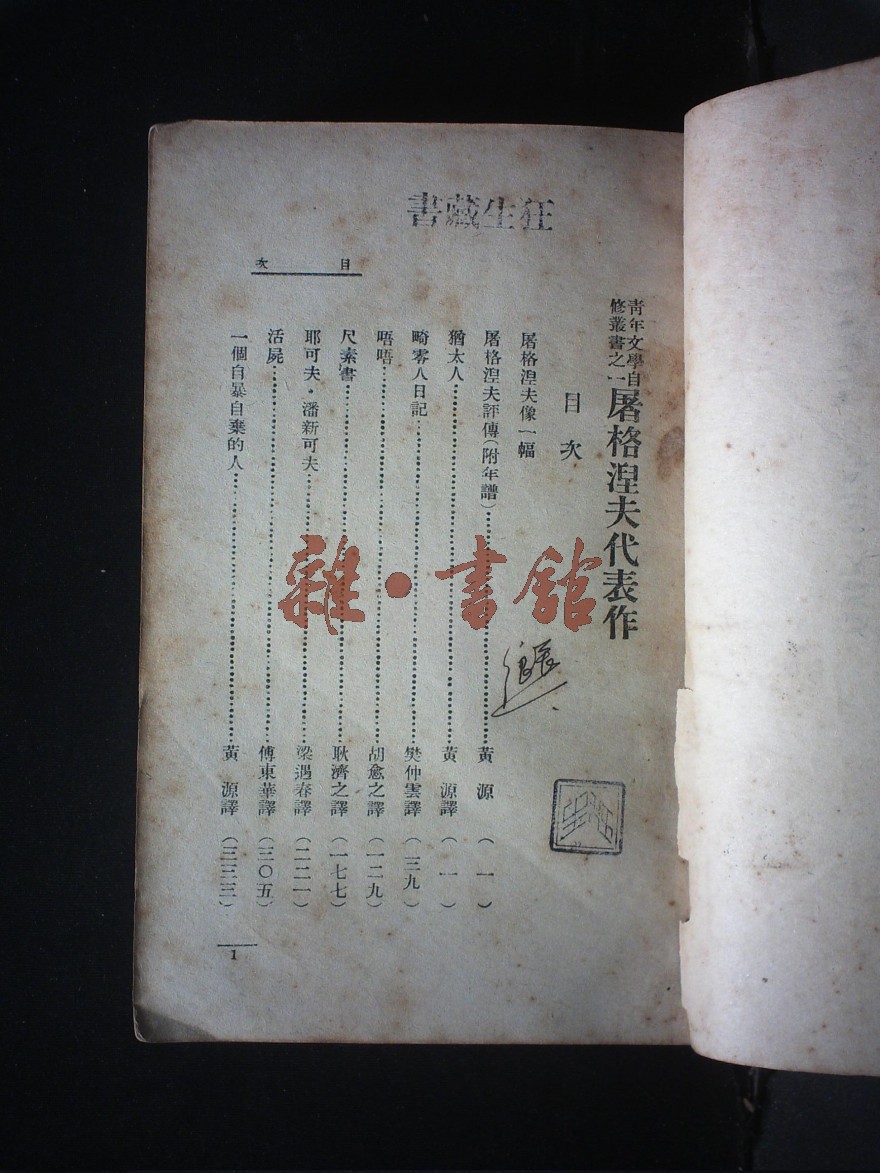 狂生藏書
目次
青年文學自
修叢書之一
屠格涅夫代表作
目次
屠格涅夫像一幅
屠格涅夫評傳(附年譜)………黃源(一)
猶太人………黃源譯(一)
畸零人日記………樊仲雲譯(三九)
唔唔………胡愈之譯(一二九)
尺素書………耿濟之譯(一七七)
耶可夫·潘新可夫………梁遇春譯(二二一)
活屍………傅東華譯(三〇五)
一個自暴自棄的人………黃源譯(三三三)
1
雜·書館